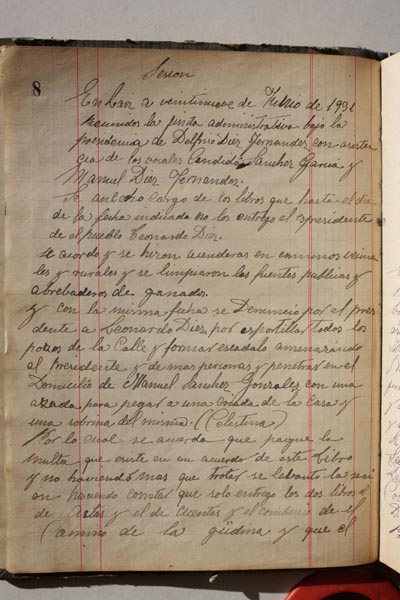 8
Sesion
En Lair a veintinueve de de 1931
reunidos la junta administrativa bajo la
presidencia de Delfino Diez Fernandez con asisten
cia de los vocales Candido Sanchez Garcia y
Manuel Diez Fernandez.
Se cargo de los libros que hasta el dia
de la fecha indicada no los entrego el espresidente
de el pueblo Leonardo Diez.
se acordo y se hiron asenderas en caminos vecina
les y rurales y se limpiaron las fuentes publicas y
abrebaderos de ganados.
y con la misma fecha se Denuncio por el presi
dente a Leonardo Diez, por esportillar todos los
de la Calle y formar escadalo amenazándo
al Presidente y de mas personas y penetrar en el
Domicilio de Manuel Sanchez Gonzalez con una
azada para pegar a una criada de la casa y
una sobrina del mismo. (Celestina)
Por lo cual se acuerda que pague la
multa que esiste en un acuerdo de este Libro
y no haviendo mas que tratar se levanto la sesi
on haviendo constar que solo entrego los dos libros el
de Actas y el de Cuentas y el de el
Camino de la güdina y que el